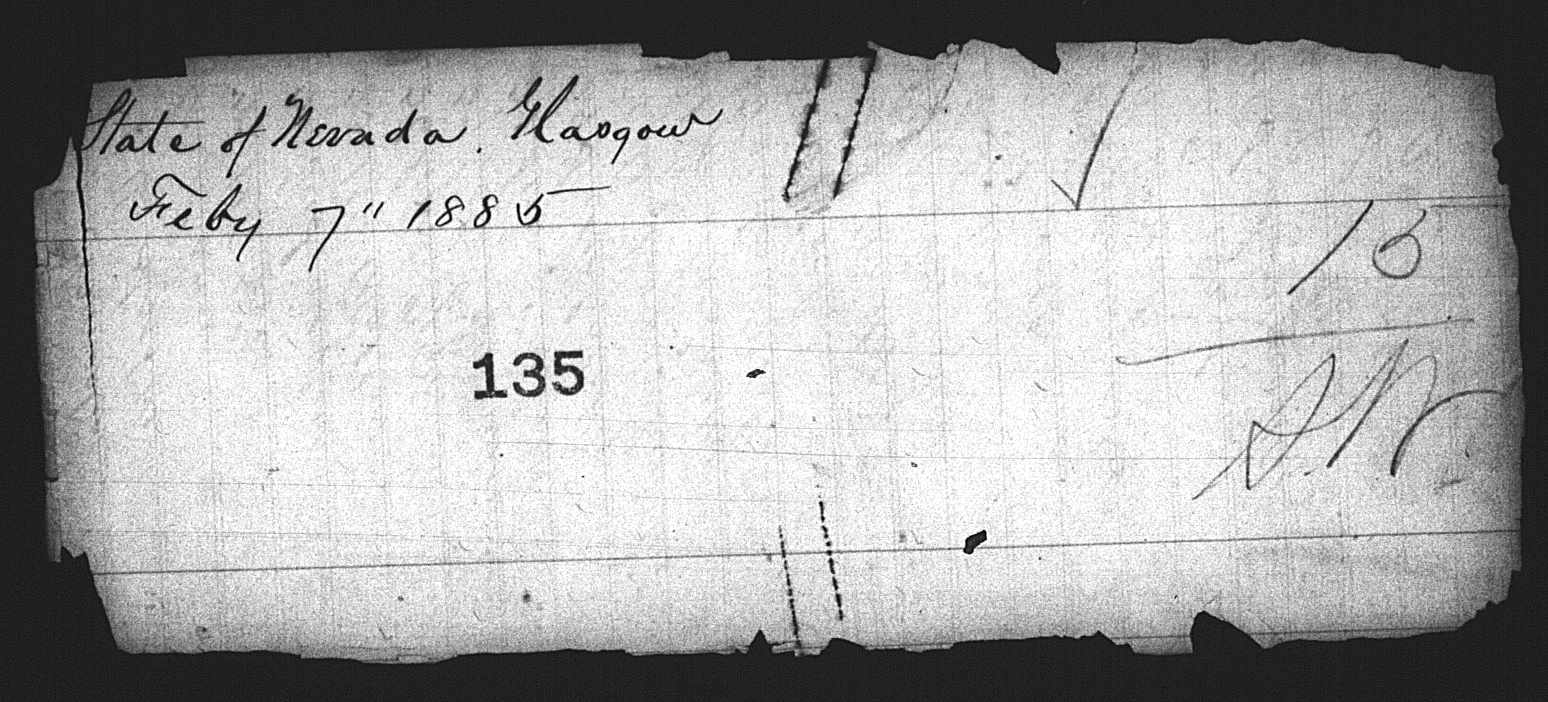 State of Nevada. Glasgow
Feby 7" 1885
15
135